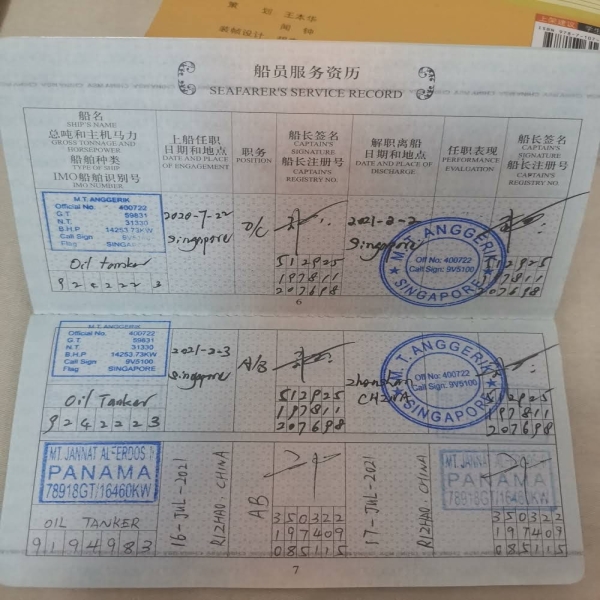 策 划 王本华
装帧设计
船员服务资历
SEAFARER'S SERVICE RECORD
船名
SHIP'S NAME
总吨和主机马力
GROSS TONNAGE AND
HORSEPOWER
船舶种类
TYPE OF SHIP
IMO船舶识别号
IMO NUMBER
上船任职
日期和地点
DATE AND PLACE
OF ENGAGEMENT
职务
POSITION
船长签名
CAPTAIN'S
SIGNATURE
船长注册号
CAPTAIN'S
REGISTRY NO.
解职离船
日期和地点
DATE AND PLACE OF
DISCHARGE
任职表现
PERFORMANCE
EVALUATION
船长签名
CAPTAIN'S
SIGNATURE
船长注册号
CAPTAIN'S
REGISTRY NO.
M.T. ANGGERIK
Official No. 400722
G.T 59831
N.T. 31330
B.H.P 14253.73KW
Call Sign
Flag
Oil tanker
2020-7-22
Singapore
O/C
512925
197811
207698
2021-2-2
Singapore
M.T. ANGGERIK
Off No: 400722
Call Sign: 9V5100
SINGAPORE
12925
197811
207698
6
M.T. ANGGERIK
Official No. 400722
G.T 59831
N.T. 31330
B.H.P 14253.73KW
Call Sign 9V5100
Flag SINGAPORE
Oil Tanker
9242223
2021-2-3
Singapore
A/B
512925
197811
207698
CHINA
M.T. ANGGERIK
Off No: 400722
Call Sign: 9V5100
SINGAPORE
512925
197811
207698
MT. JANNAT AL-FERDOS
PANAMA
78918GT/16460KW
OIL TANKER
9194983
16-JUL-2021
RIZHAO. CHINA
AB
350322
197409
085115
17-JUL-2021
RIZHAO. CHINA
MT. JANNA
PANAMA
78918GT/16460KW
350322
197409
085115
7